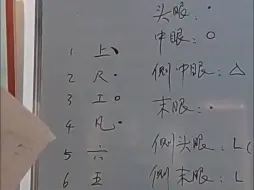 头眼：•
中眼：○
侧中眼：△
末眼：•
侧头眼：L(
侧末眼：L
1 上、
2 尺•
3 工○
4 凡•
5 六
6 五